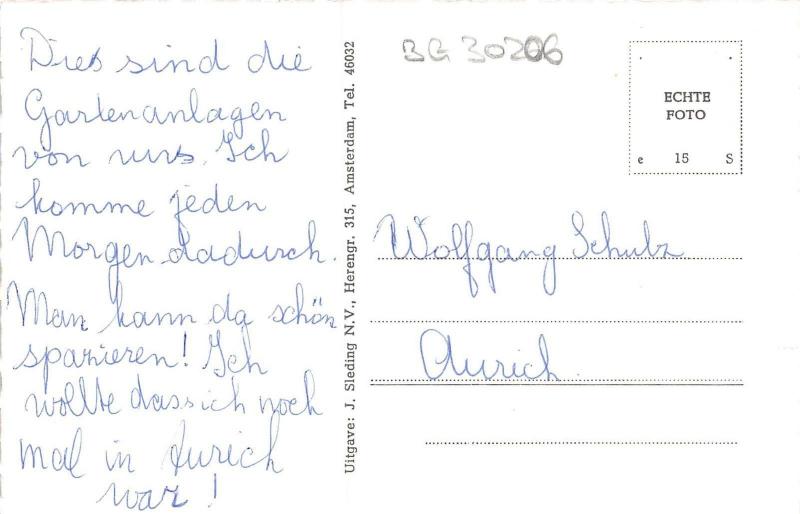 Dies sind die
Gartenanlagen
von uns. Ich
komme jeden
Morgen dadurch.
Man kann da schön
spazieren! Ich
wollte dass ich noch
mal in Aurich
war!
Uitgave: J. Sleding N.V., Herengr. 315, Amsterdam, Tel. 46032
BG 30206
ECHTE
FOTO
e 15 S
Wolfgang Schulz
Aurich.